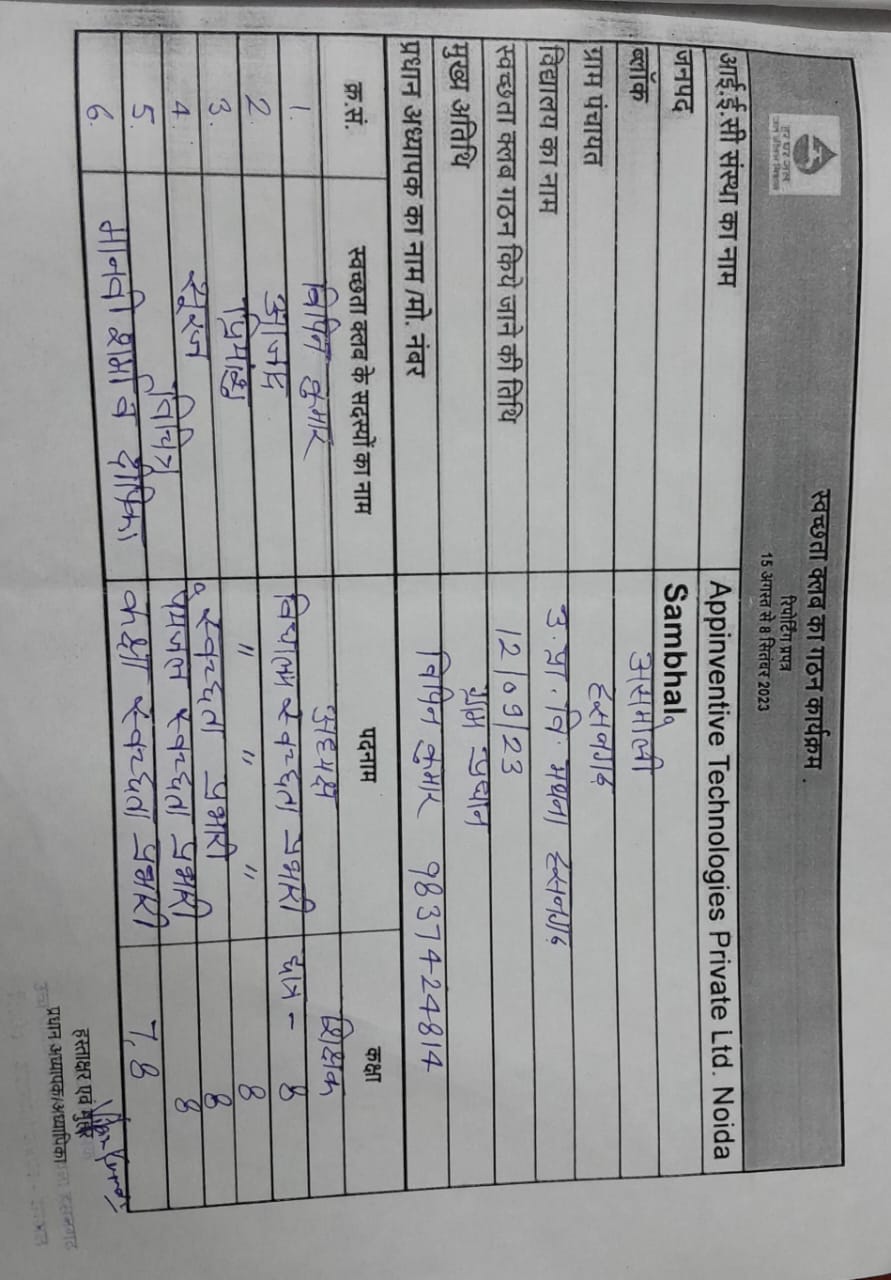 हर घर जल
जल जीवन मिशन
स्वच्छता क्लब का गठन कार्यक्रम
रिपोर्टिंग प्रपत्र
15 अगस्त से 8 सितंबर 2023
आई.ई.सी संस्था का नाम Appinventive Technologies Private Ltd. Noida
जनपद Sambhal
ब्लॉक असमोली
ग्राम पंचायत
विद्यालय का नाम उ.प्रा.वि. मथना
स्वच्छता क्लब गठन किये जाने की तिथि 12/09/23
मुख्य अतिथि ग्राम प्रधान
प्रधान अध्यापक का नाम/मो. नंबर विपिन कुमार 9837424814
क्र.सं. स्वच्छता क्लब के सदस्यों का नाम पदनाम कक्षा
1. विपिन कुमार अध्यक्ष शिक्षक
2. विद्यालय स्वच्छता प्रभारी छात्र - 8
3. " " " 8
4. सूरज स्वच्छता प्रभारी 8
5. पेयजल स्वच्छता प्रभारी 8
6. मानवी शर्मा व दीपिका कक्षा स्वच्छता प्रभारी 7,8
हस्ताक्षर एवं मुहर
प्रधान अध्यापक/अध्यापिका